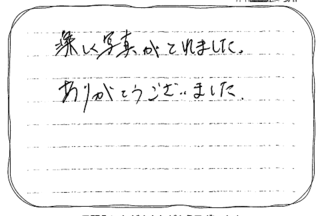 楽しく写真がとれました。
ありがとうございました.